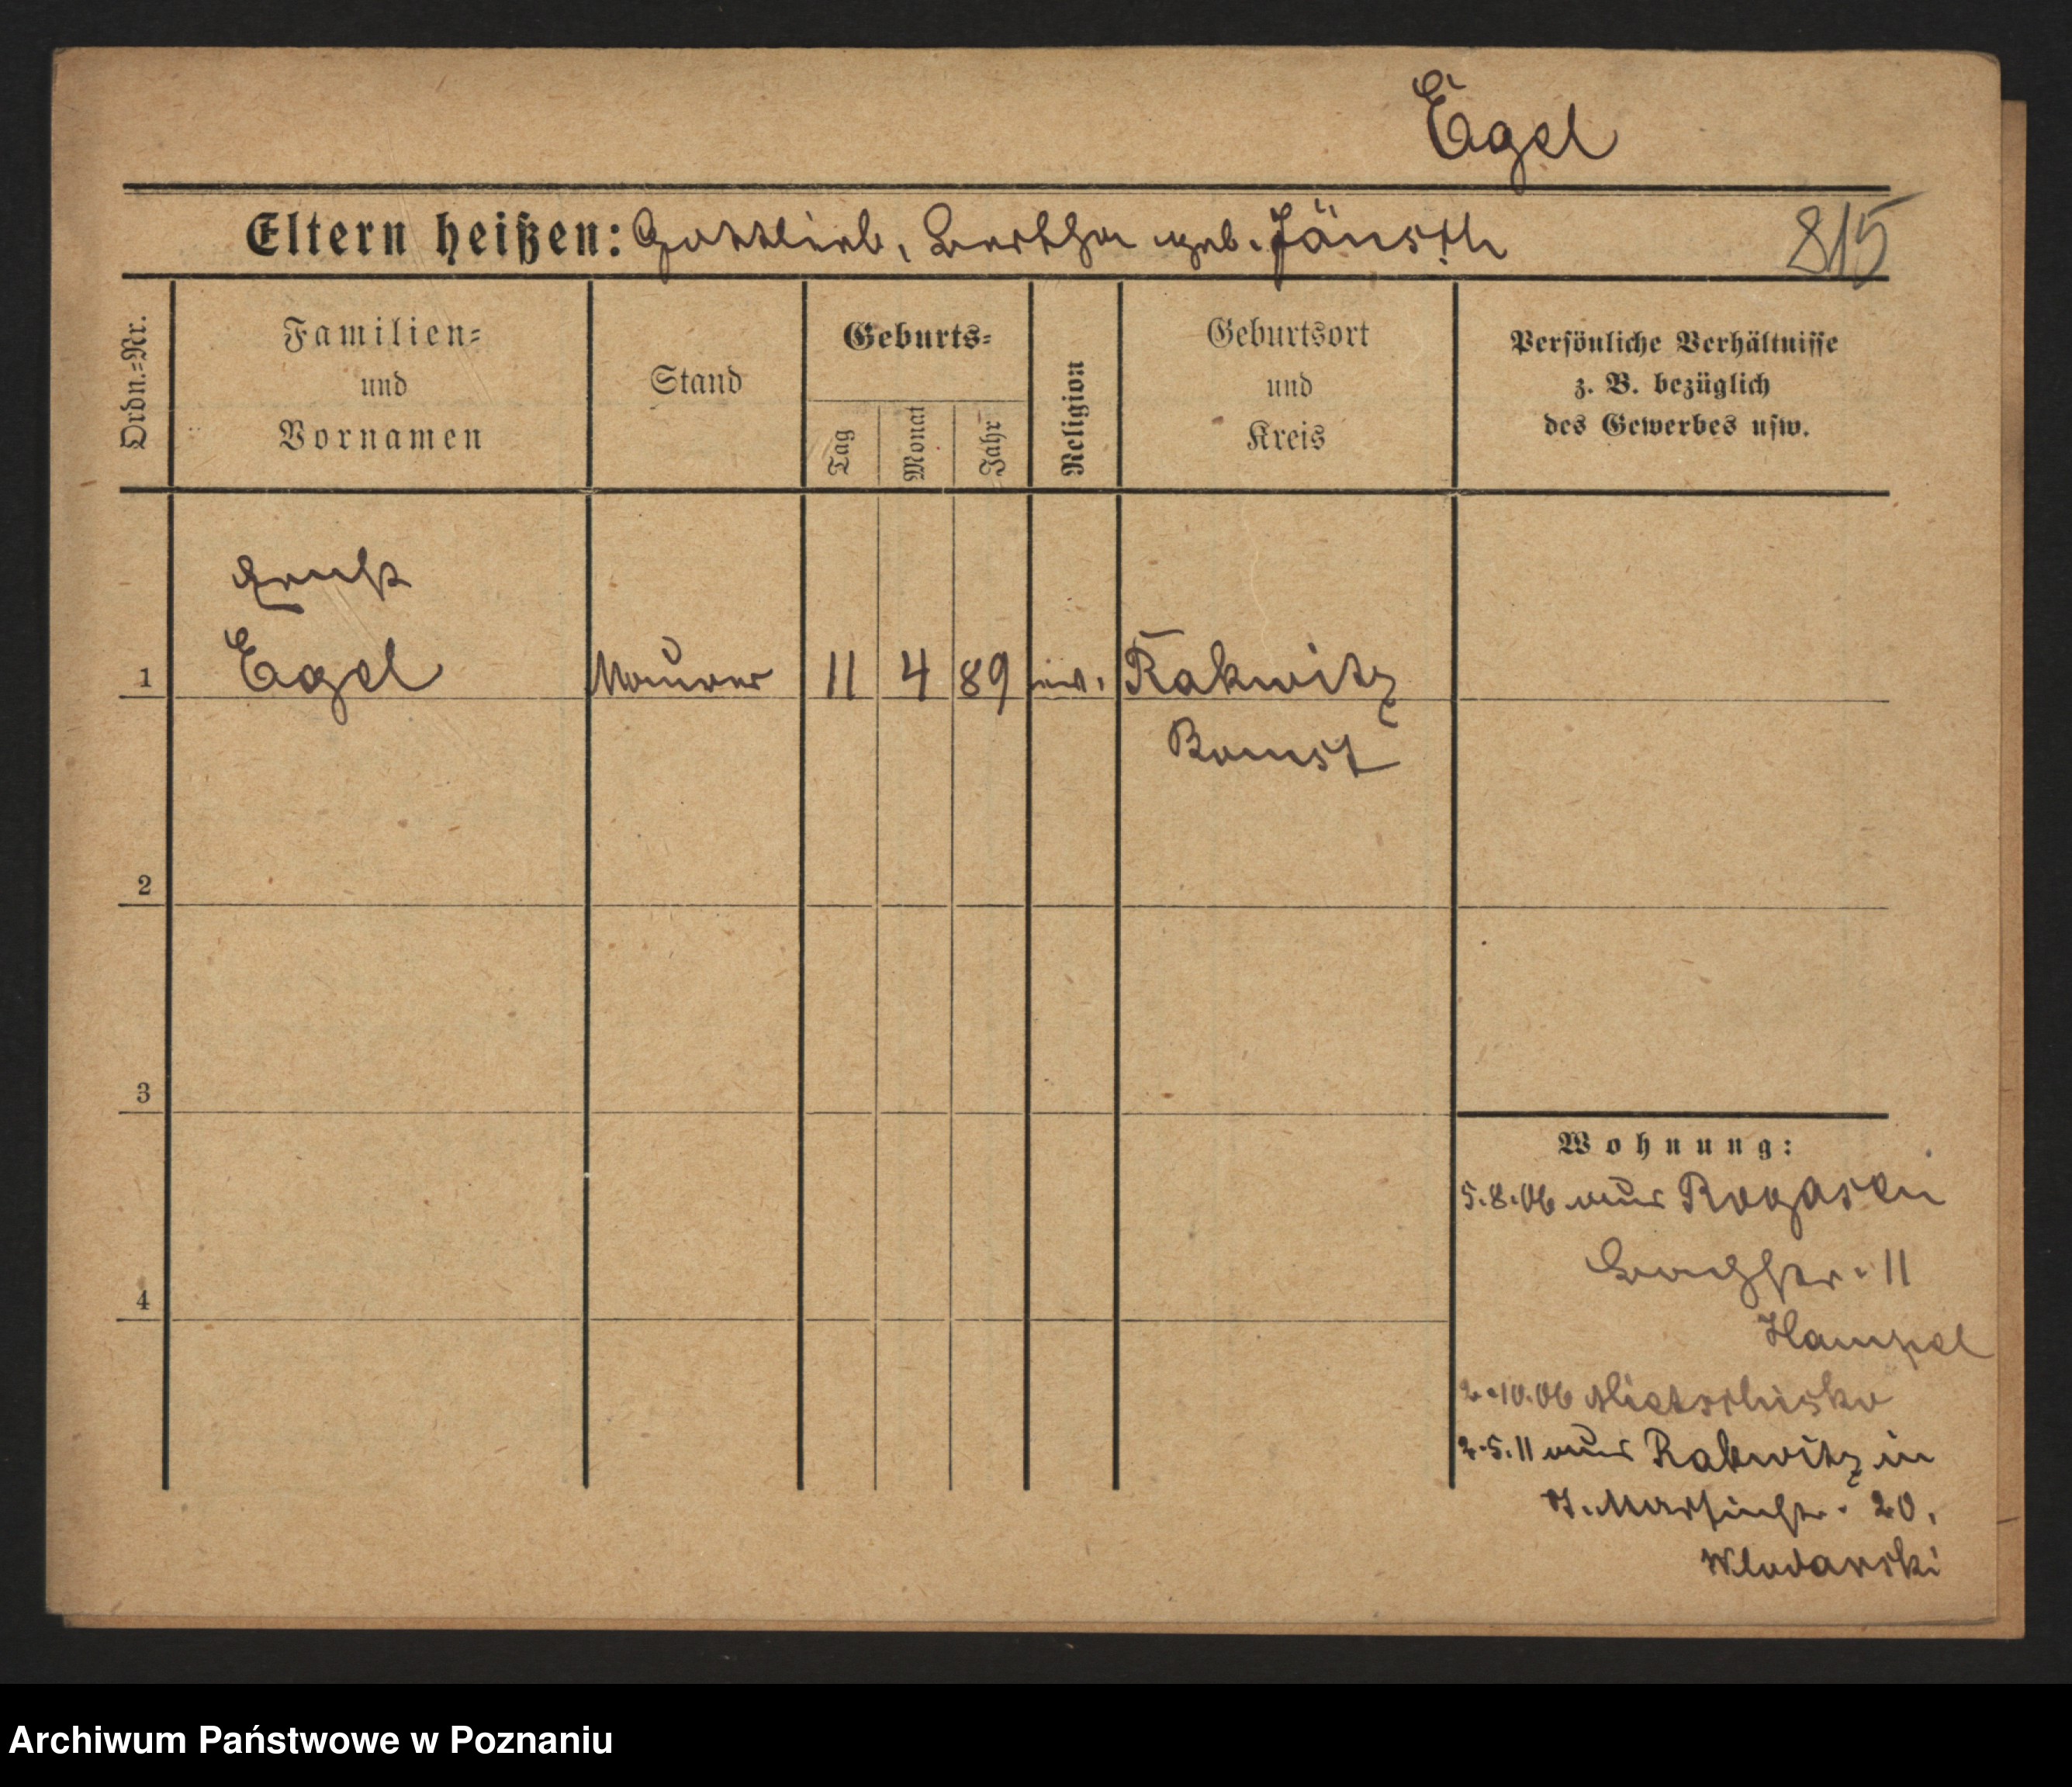 Egel
Eltern heißen: Gottlieb, Bertha geb. Jänsch
815
Ordn.-Nr.
Familien-
und
Vornamen
Stand
Geburts-
Tag
Monat
Jahr
Religion
Geburtsort
und
Kreis
Persönliche Verhältnisse
z. B. bezüglich
des Gewerbes usw.
Ernst
1 Egel Maurer 11 4 89 ev. Rakwitz
Bomst
2
3
4
Wohnung:
5.8.06 aus Rogasen
Bachstr. 11
Hampel
2.10.06 Mietschisko
2.5.11 aus Rakwitz in
St. Martinstr. 20.
Wlodarski
Archiwum Państwowe w Poznaniu